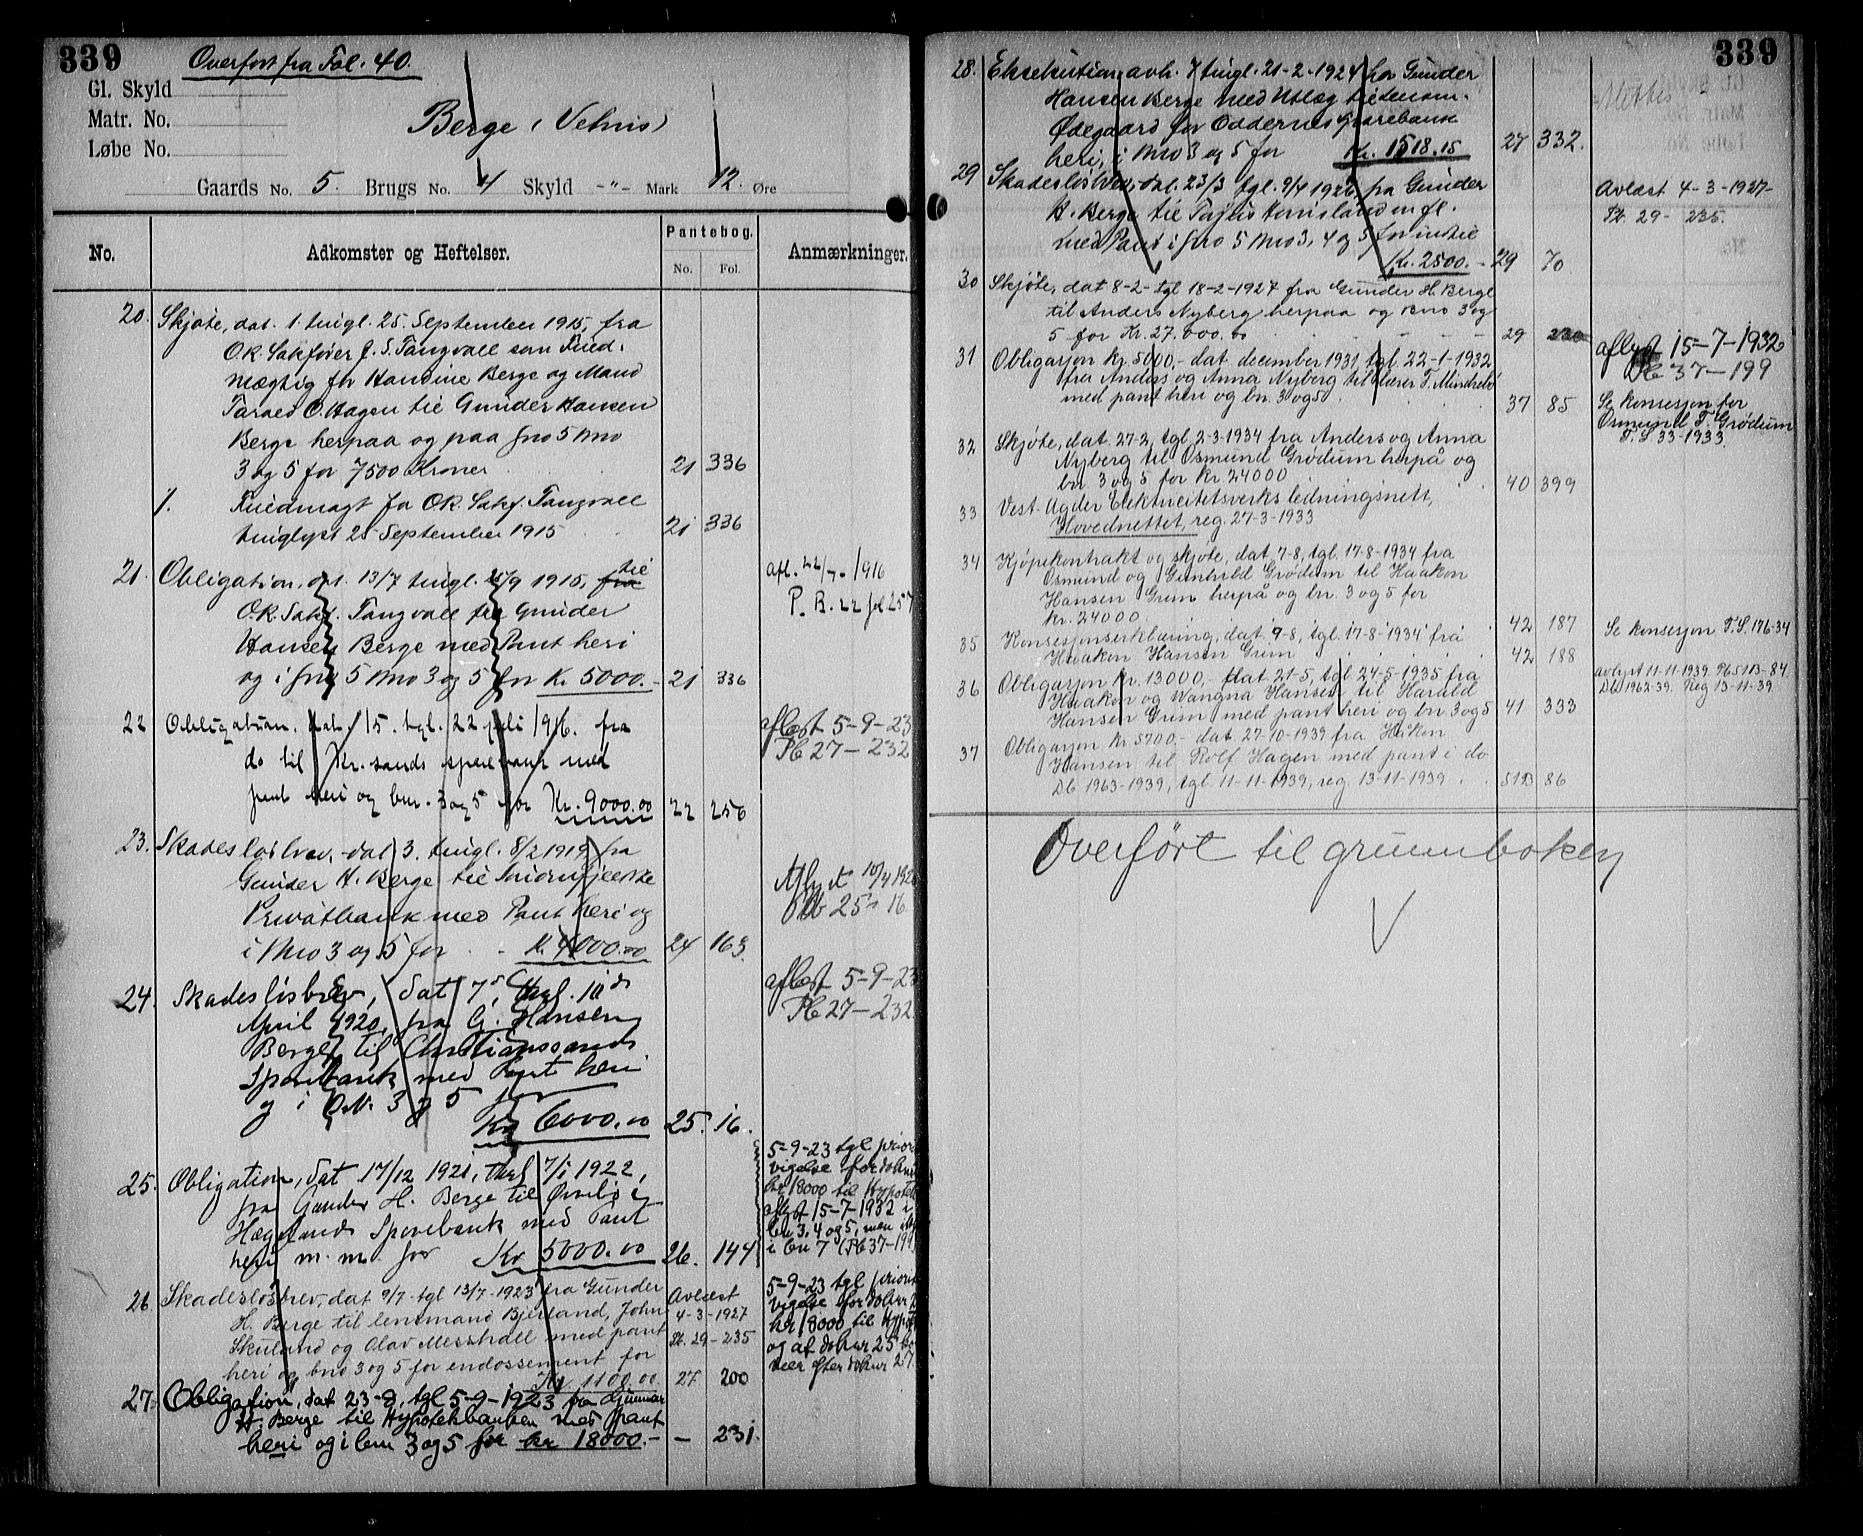 339
Overført fra Fol. 40.
Gl. Skyld
Matr. No.
Løbe No.
Berge (Vehus)
Gaards No. 5. Brugs No. 4 Skyld -"- Mark 12. Øre
No. Adkomster og Heftelser. Pantebog. No. Fol. Anmærkninger.
20. Skjøte, dat. 1. tingl. 25. September 1915, fra
O.R. Sakfører J. S. Tangvall som Fuld-
mægtig for Handine Berge og Mand
O. Hagen til Gunder Hansen
Berge herpaa og paa Gno 5 Bno
3 og 5 for 7500 Kroner 21 336
%. Fuldmagt fa O.R. Sakf. Tangvall
tinglyst 25 September 1915 21 336
21. Obligation, dat. 13/7 tingl. 25/9 1915, fra til
O.R. Sakf. Tangvall fra Gunder
Hansen Berge med Pant heri
og i Gno 5 Bno 3 og 5 for Kr. 5000.- 21 336
afl. 22/7 1916
P. B. 22 fol 257
22 Obligation, dat. 15. tgl. 22 juli 1916. fra
do til Kr.sands sparebank med
pant heri og bnr. 3 og 5 for Kr. 9000.00 22 256
aflæst 5-9-23
Pb 27-232
23. Skadesløsbrev, dat 3. tingl. 8/2 1919, fra
Gunder H. Berge til
Privatbank med Pant heri og
i Bno 3 og 5 for Kr. 4000.00 24 163.
Aflyst 10/4 1920
Pb 25 16.
24. Skadesløsbrev, dat 7de, thgl. 10de
April 1920, fra G. Hansen
Berge til Christianssands
Sparebank med Pant heri
og i B.N. 3 og 5 for
Kr 6000.00 25. 16.
aflæst 5-9-23
Pb 27-232
25. Obligation, dat 17/12 1921, thgl 7/1 1922,
fra Gunder H. Berge til Øvrebø og
Hægelands Sparebank med Pant
heri m. m. for Kr 5000.00 26. 144
5-9-23 tgl prior
vigelse for dok nr
kr 18000 til Hypotek
aflyst 15-7-1932 i
bn 3, 4 og 5, men
i bn 7 (Pb 37-199)
26. Skadesløsbrev, dat 9/7 tgl 13/7-1923 fra Gunder
H. Berge til lensmand Bjerland, John
Skuland og Olav med pant
heri og bno 3 og 5 for endossement for
Kr 1100.00. 27 200
Avlæst
4-3-1927
Pb. 29-235
5-9-23 tgl priorit
vigelse for dok nr 2
kr 18000 til Hypot
og at dok nr 25
efter dok nr 27.
27. Obligation, dat 23-8, tgl 5-9-1923 fra Gunnar
H. Berge til Hypotekbanken med pant
heri og i bnr 3 og 5 for kr 18000.- - 231.
339
28. Eksekution avh. 7 tingl. 21-2-1924 hos Gunder
Hansen Berge med Utlæg
Ødegaard for Oddernes Sparebank
heri, i Bno 3 og 5 for Kr. 1518.15 27 332.
29 Skadesløsbrev, dat. 23/3 tgl. 9/4 1926, fra Gunder
H. Berge til m fl.
med Pant i Gno 5 Bno 3, 4 og 5 for indtil
Kr. 2500.- 29 70
Avlæst 4-3-1927-
Pb. 29- 235.
30 Skjøte, dat 8-2- tgl 18-2-1927 fra Gunder H. Berge
til Anders Nyberg herpaa og Bno 3 og
5 for Kr. 27.000.00 29 230
31 Obligasjon kr. 5000,- dat. december 1931 tgl. 22-1-1932
fra Anders og Anna Nyberg til lærer T. Mindrebø
med pant heri og bn. 3 og 5 37 85
aflyst 15-7-1932
Pb 37-199
Se konsesjon for
Osmund T. Grødum
T. S. 33-1933
32 Skjøte, dat. 27-2, tgl. 2-3-1934 fra Anders og Anna
Nyberg til Osmund Grødum herpå og
bn. 3 og 5 for kr 24000 40 399
33 Vest-Agder Elektricitetsverks ledningsnett,
Hovednettet, reg. 27-3-1933
34 Kjøpekontrakt og skjøte, dat. 7-8, tgl. 17-8-1934 fra
Osmund og Gunhild Grødum til Haakon
Hansen Grim herpå og bn. 3 og 5 for
kr. 24000. 42 187
Se konsesjon T.S. 176-34
35 Konsesjonserklæring, dat. 9-8, tgl. 17-8-1934 fra
Haakon Hansen Grim 42 188
36 Obligasjon kr. 13000,- dat. 21-5, tgl 24-5-1935 fra
Haakon og Hansen til Harald
Hansen Grim med pant heri og bn 3 og 5 41 333
avlyst 11-11-1939 Pb 513-84
Db 1962-39. Reg 13-11-39.
37 Obligasjon kr. 5700,- dat. 27-10-1939 fra Håkon
Hansen til Rolf Hagen med pant i do
Db 1963-1939, tgl. 11-11-1939, reg. 13-11-1939 51B 86
Overført til grunnboken